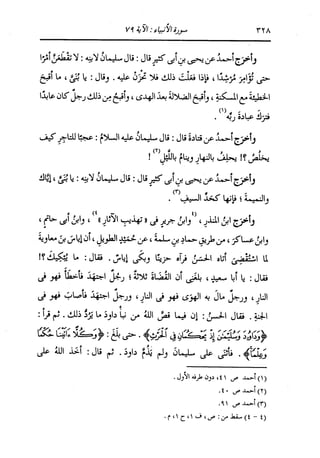 ٣٢٨ سورة الأنبياء : الآية ٧٩
وأخرج أحمدُ عن يحيى بنِ أبى كثيرٍ قال : قال سليمانُ لابنِه : لا تَقْطَعَنَّ أمرًا
حتى تُؤامِرَ مُرْشِدًا ، فإذا فعَلتَ ذلك فلا تَحْزَنْ عليه . وقال : يا بُنَىَّ ، ما أقبحَ
الخطيئةَ مع المسكنةِ ، وأقبحَ الضلالةَ بعدَ الهدى ، وأقبحُ مِن ذلك رجلٌ كان عابدًا
فترَك عبادةَ ربِّه (١) .
وأخرج أحمدُ عن قتادةَ قال : قال سليمانُ عليه السلامُ : عجبًا للتاجرِ كيف
يخلُصُ ؟! يحلِفُ بالنهارِ وينامُ بالليلِ (٢) !
وأخرج أحمدُ عن يحيى بنِ أبى كثيرٍ قال : قال سليمانُ لابنِه : يا بُنَىَّ ، إيَّاك
والنميمةَ ؛ فإنها كحَدِّ السيفِ (٣) .
وأخرج ابنُ المنذرِ ، (٤) وابنُ جريرٍ فى « تهذيبِ الآثارِ » (٤) ، وابنُ أبى حاتمٍ ،
وابنُ عساكرَ ، من طريقِ حمادِ بنِ سلمةَ ، عن حُمَيدٍ الطويلِ ، أن إياسَ بنَ معاويةَ
لما استُقْضِىَ أتاه الحسنُ فرآه حزينًا وبكَى إياسٌ . فقال : ما يُبْكيك ؟!
فقال : يا أبا سعيدٍ ، بلَغنى أن القُضاةَ ثلاثةٌ ؛ رجلٌ اجتهَد فأخطأ فهو فى
النارِ ، ورجلٌ مال به الهَوَى فهو فى النارِ ، ورجلٌ اجتهَد فأصاب فهو فى
الجنةِ . فقال الحسنُ : إن فيما قصَّ اللهُ من نبأِ داودَ ما يَرُدُّ ذلك . ثم قرَأ :
﴿ وَدَاوُدَ وَسُلَيْمَٰنَ إِذْ يَحْكُمَانِ فِى الْحَرْثِ ﴾ . حتى بلَغ : ﴿ وَكُلًّا ءَاتَيْنَا حُكْمًا
وَعِلْمًا ﴾ . فأثنى على سليمانَ ولم يَذُمَّ داودَ . ثم قال : أخَذ اللهُ على
(١) أحمد ص ٤١ ، دون طرفه الأول .
(٢) أحمد ص ٤٠ .
(٣) أحمد ص ٩١ .
(٤ - ٤) سقط من : ص ، ف ١ ، ح ١ ، م .